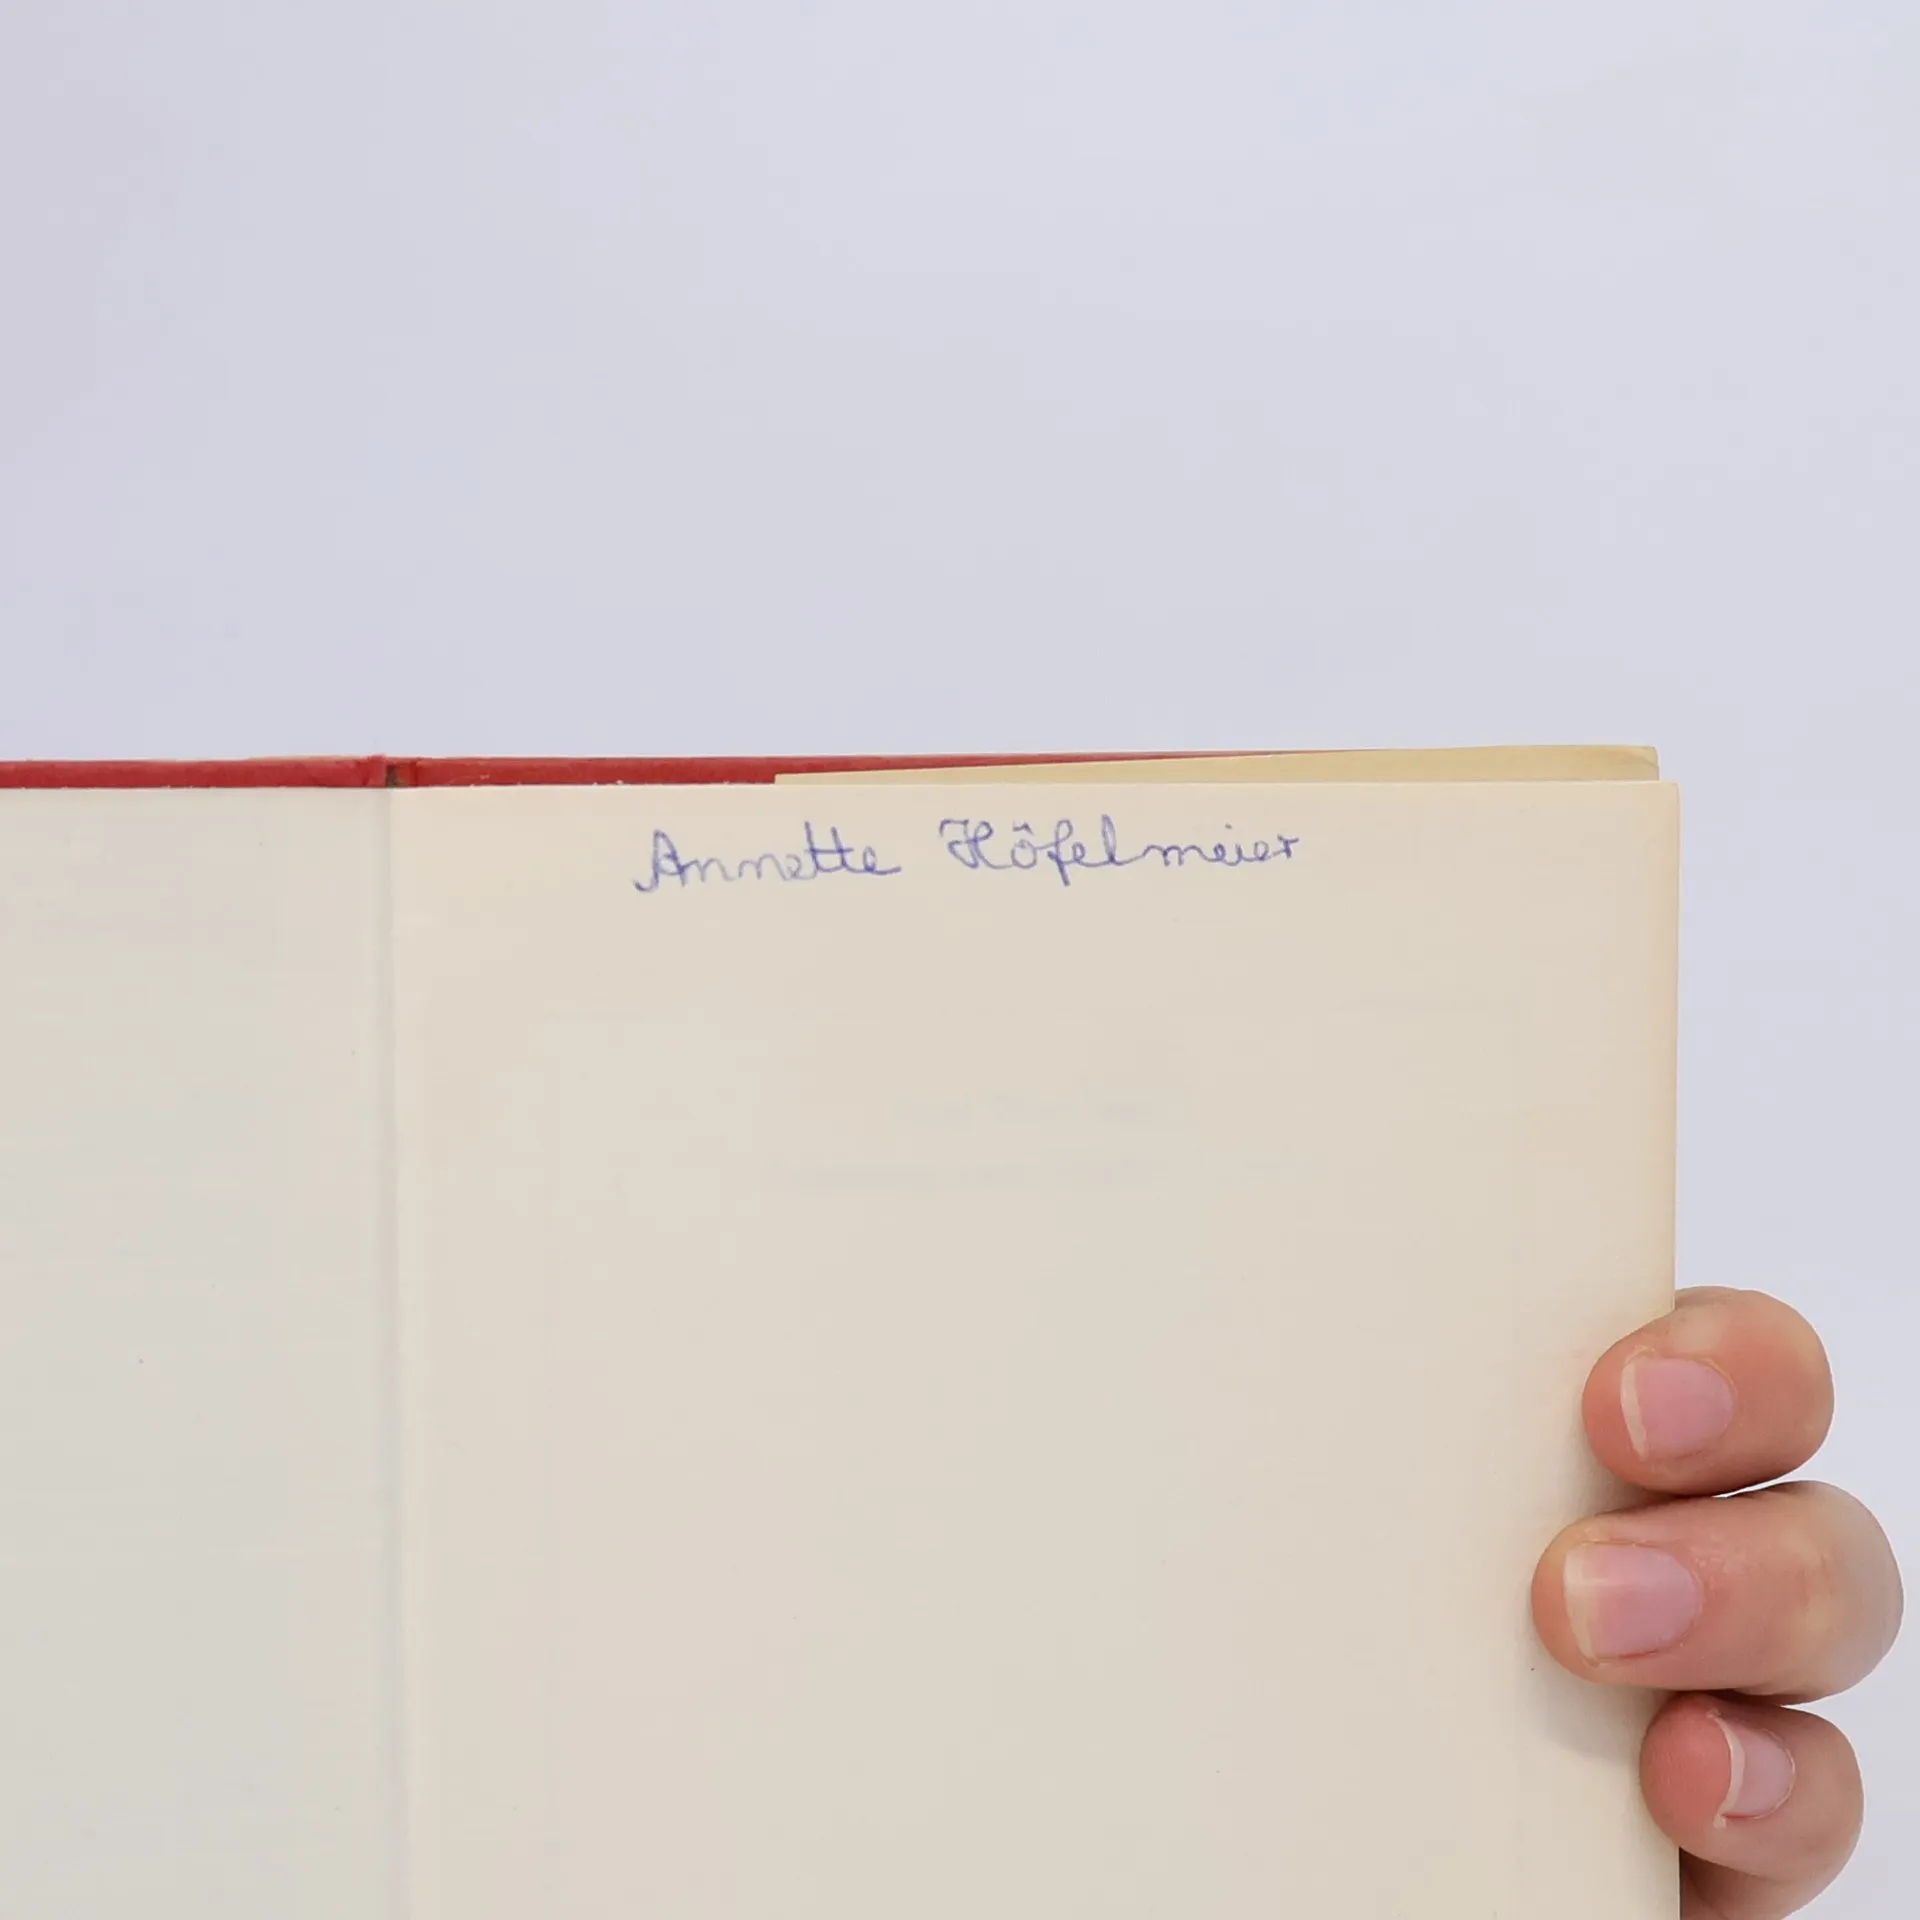 Annette Höfelmeier